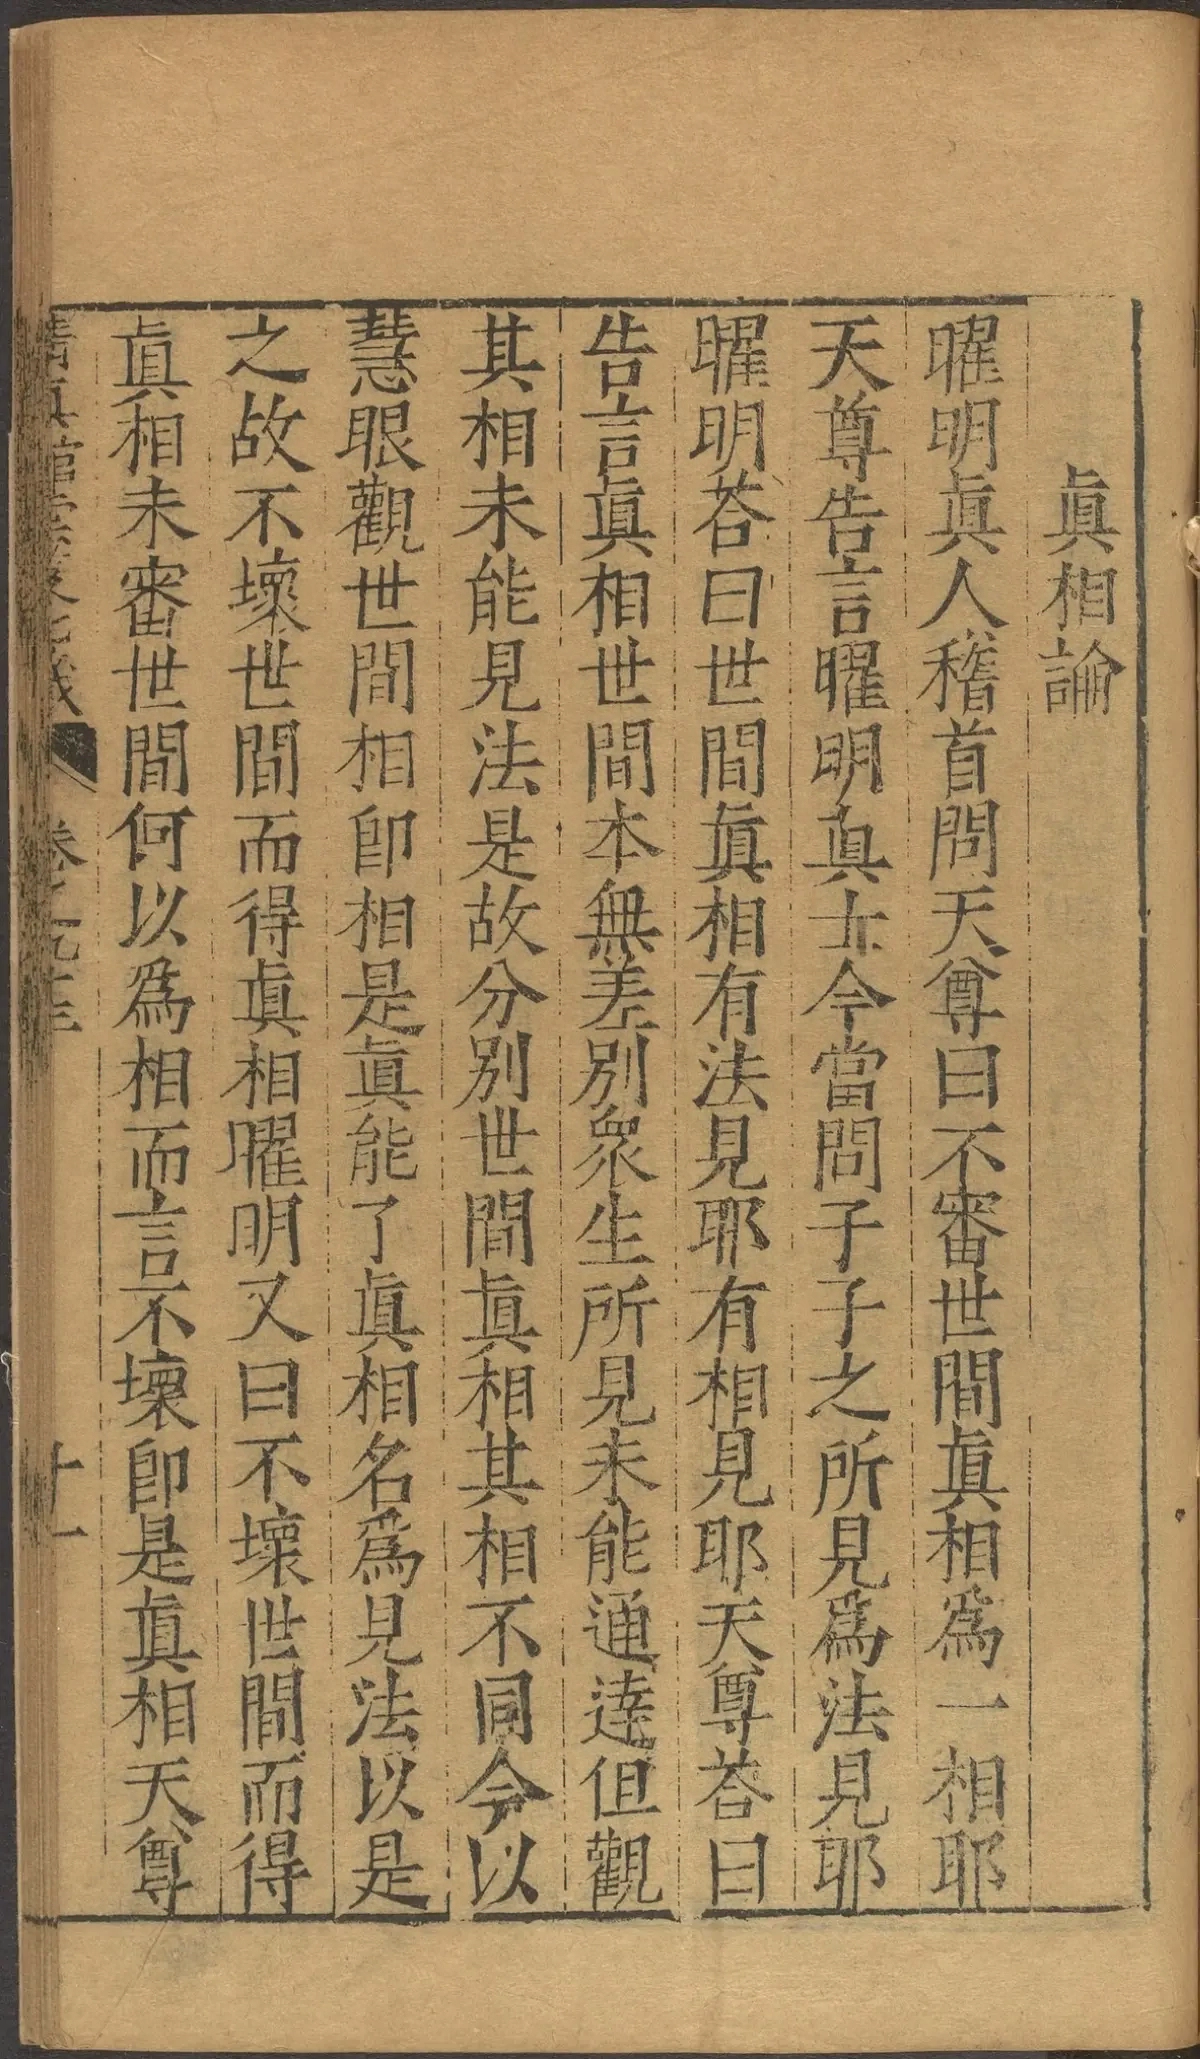 眞相論
曜明眞人稽首問天尊曰不審世間眞相爲一相耶
天尊告言曜明眞士今當問子子之所見爲法見耶
曜明荅曰世間眞相有法見耶有相見耶天尊荅曰
告言眞相世間本無差別衆生所見未能通達但觀
其相未能見法是故分別世間眞相其相不同今以
慧眼觀世間相卽相是眞能了眞相名爲見法以是
之故不壞世間而得眞相曜明又曰不壞世間而得
眞相未審世間何以爲相而言不壞卽是眞相天尊
十一